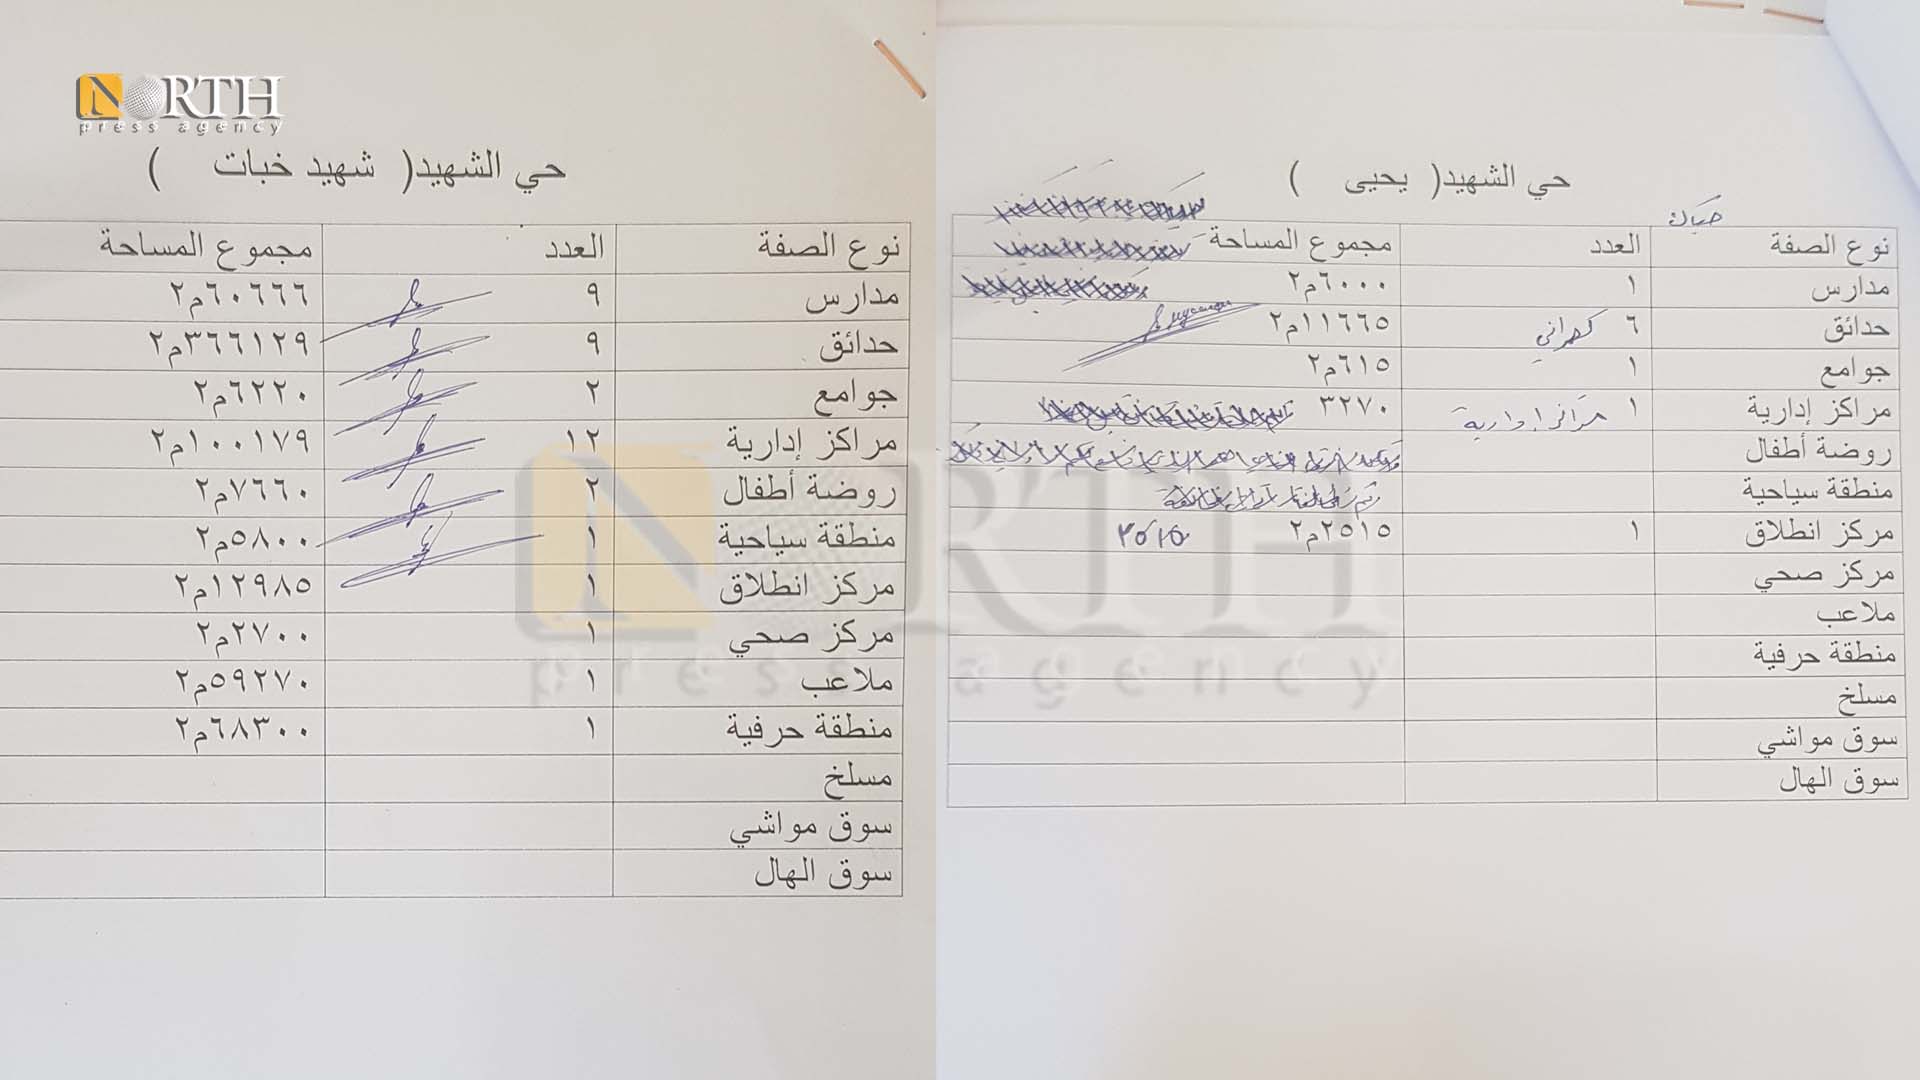 NORTH
press agency
حي الشهيد( شهيد خبات )
نوع الصفة العدد مجموع المساحة
مدارس ٩ ٦٠٦٦٦م٢
حدائق ٩ ٣٦٦١٢٩م٢
جوامع ٢ ٦٢٢٠م٢
مراكز إدارية ١٢ ١٠٠١٧٩م٢
روضة أطفال ٢ ٧٦٦٠م٢
منطقة سياحية ١ ٥٨٠٠م٢
مركز انطلاق ١ ١٢٩٨٥م٢
مركز صحي ١ ٢٧٠٠م٢
ملاعب ١ ٥٩٢٧٠م٢
منطقة حرفية ١ ٦٨٣٠٠م٢
مسلخ
سوق مواشي
سوق الهال
حي الشهيد( يحيى )
نوع الصفة العدد مجموع المساحة
مدارس ١ ٦٠٠٠م٢
حدائق ٦ ١١٦٦٥م٢
جوامع ١ ٦١٥م٢
مراكز إدارية ١ مراكز إدارية ٣٢٧٠
روضة أطفال
منطقة سياحية
مركز انطلاق ١ ٢٥١٥م٢ ٢٥١٥
مركز صحي
ملاعب
منطقة حرفية
مسلخ
سوق مواشي
سوق الهال
NORTH
press agency